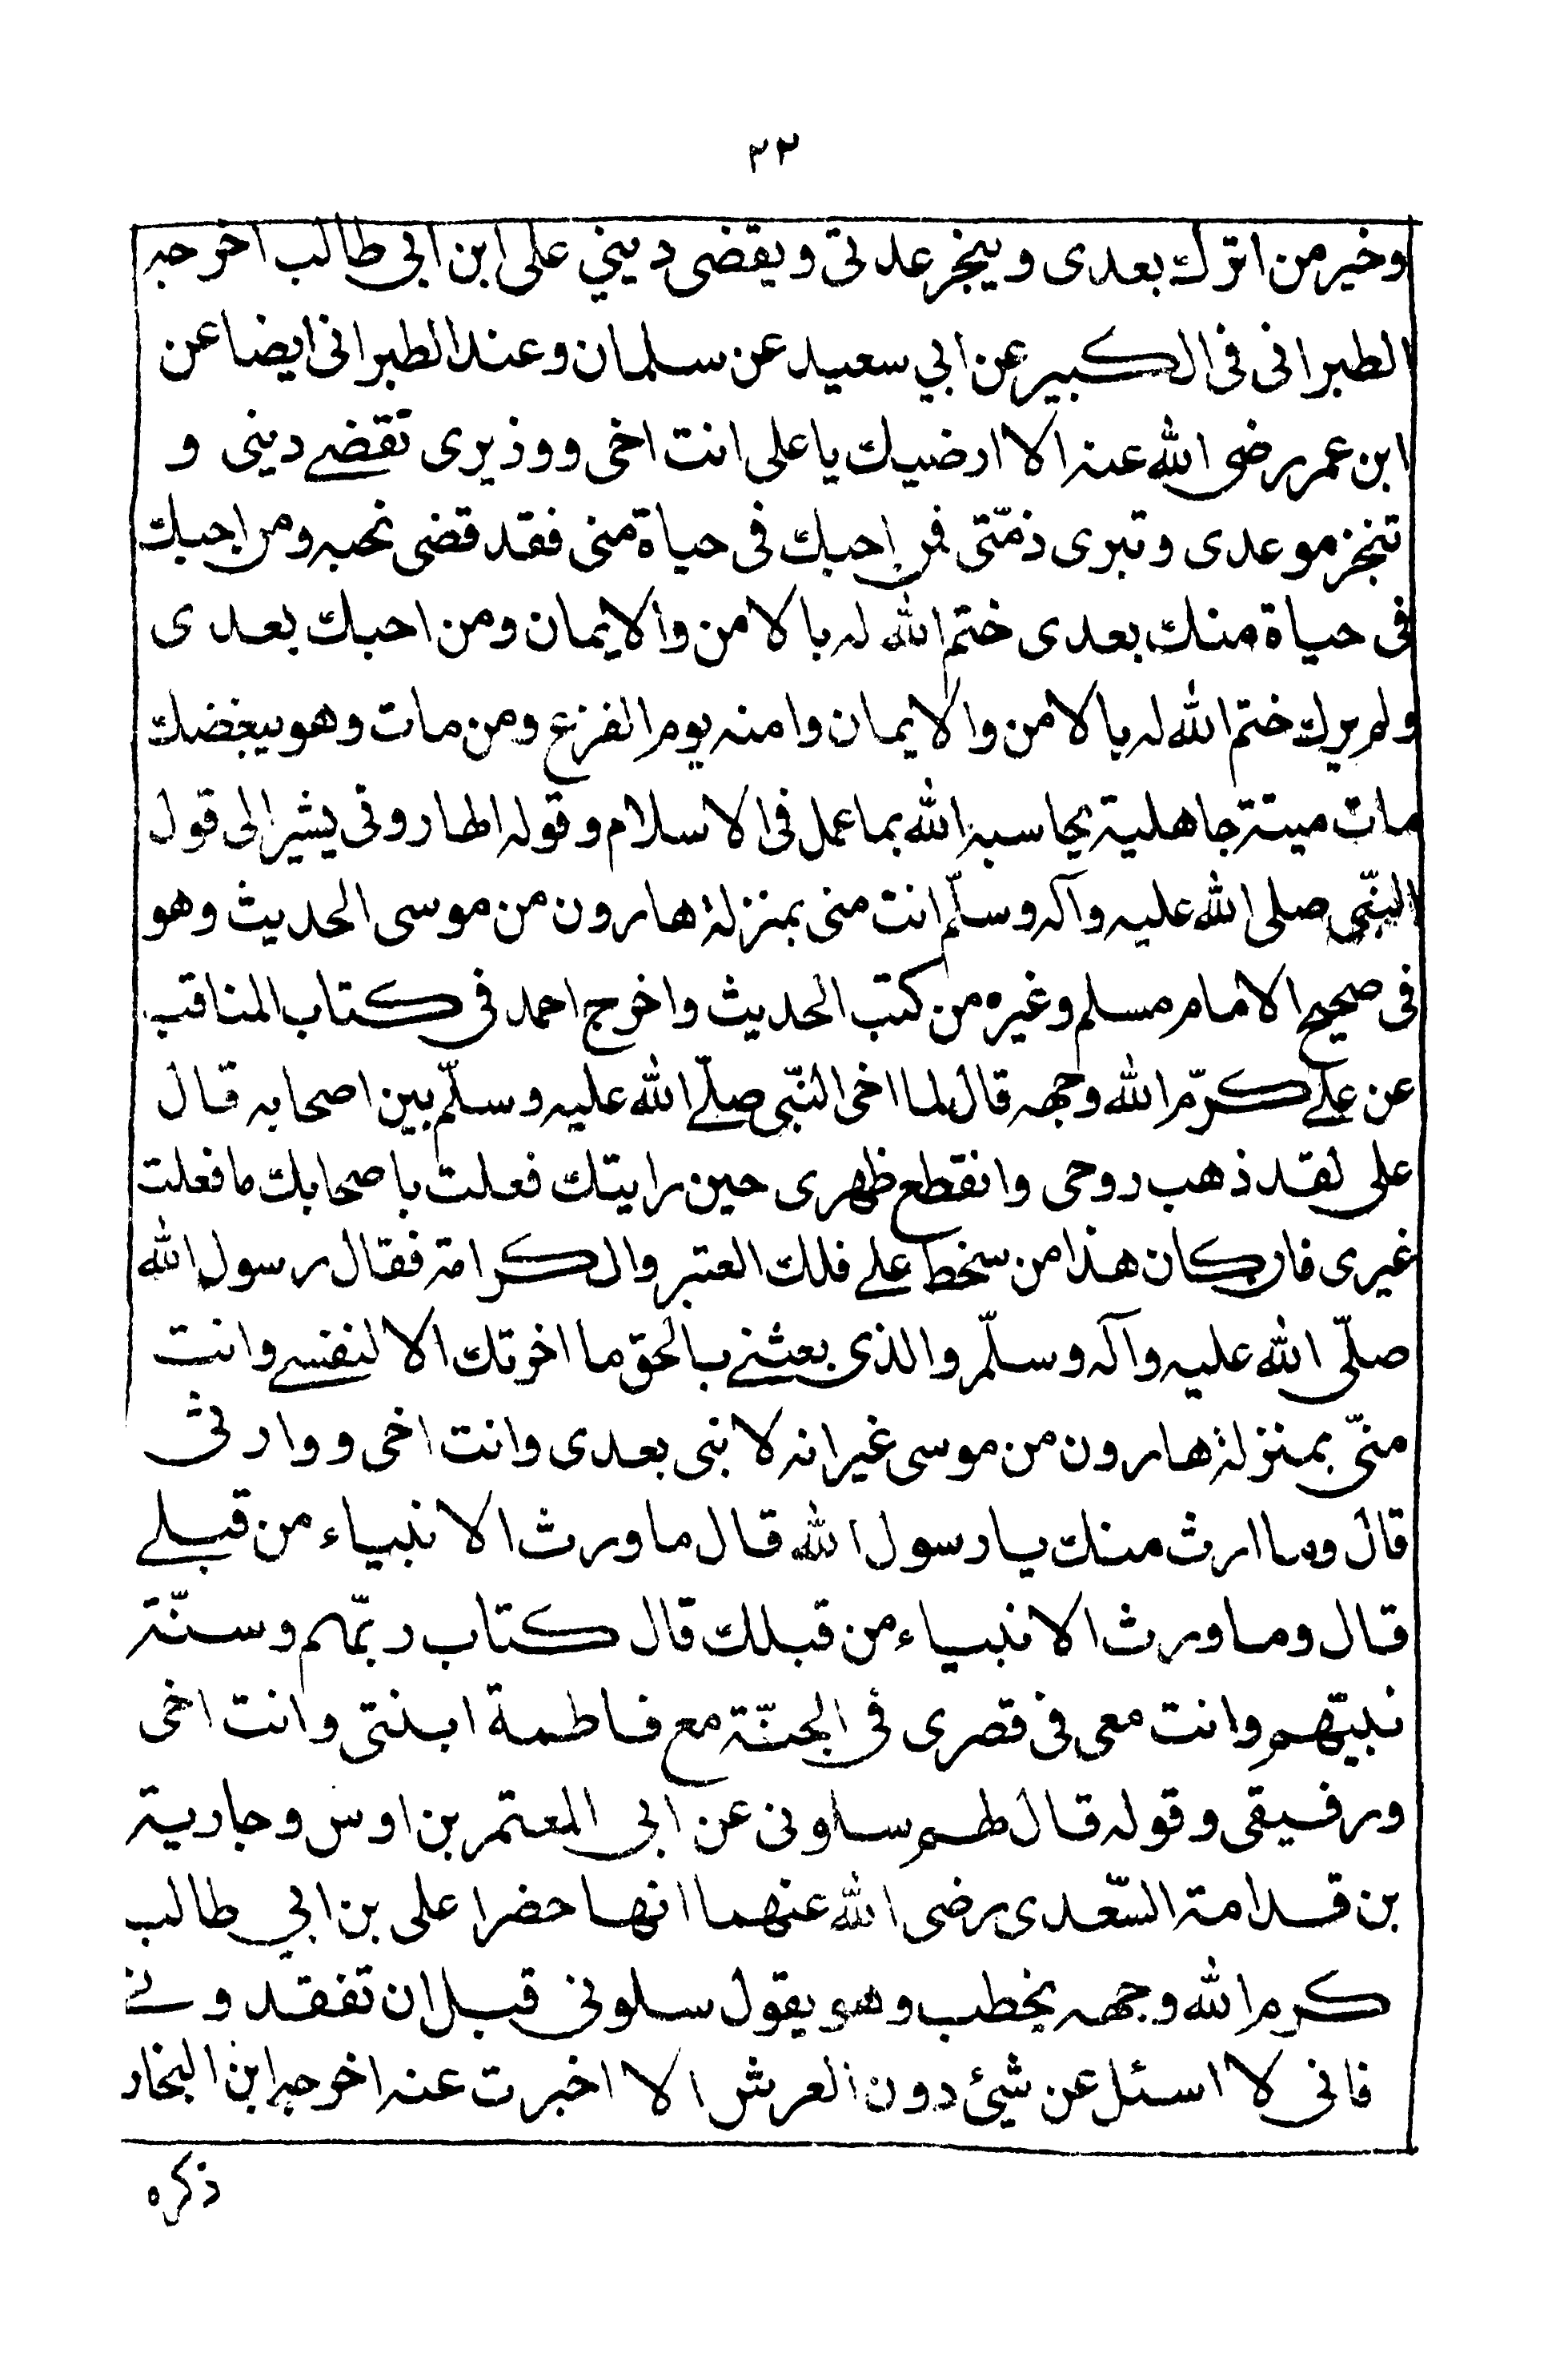 ٢٣
وخير من اترك بعدى وينجز عدتى ويقضى ديني على ابن ابي طالب اخرجه
الطبرانى فى الكبير عن ابي سعيد عن سلمان وعند الطبرانى ايضا عن
ابن عمر رضى الله عنه الا ارضيك يا على انت اخى ووزيرى تقضے دينى و
تنجز موعدى وتبرى ذمّتى فمن احبك فى حياة منى فقد قضى نحبه ومن احبك
فى حياة منك بعدى ختم الله له بالامن والايمان ومن احبك بعدى
ولم يرك ختم الله له بالامن والايمان وامنه يوم الفزع ومن مات وهو يبغضك
مات ميتة جاهلية يحاسبه الله بما عمل فى الاسلام وقوله الهارونى يشير الى قول
النبّى صلى الله عليه وآله وسلّم انت منى بمنزلة هارون من موسى الحديث وهو
فى صحيح الامام مسلم وغيره من كتب الحديث واخرج احمد فى كتاب المناقب
عن علے كرّم الله وجهه قال لما اخى النبّى صلّے الله عليه وسلّم بين اصحابه قال
على لقد ذهب روحى وانقطع ظهرى حين رايتك فعلت باصحابك ما فعلت
غيرى فان كان هذا من سخط علے فلك العتبى والكرامة فقال رسول الله
صلّى الله عليه وآله وسلّم والذى بعثنے بالحق ما اخرتك الا لنفسے وانت
منّى بمنزلة هارون من موسى غير انه لا نبى بعدى وانت اخى ووارثى
قال وما ارث منك يا رسول الله قال ما ورث الانبياء من قبلے
قال وما ورث الانبياء من قبلك قال كتاب ربّهم وسنّة
نبيّهم وانت معى فى قصرى فى الجنّة مع فاطمة ابنتى وانت اخى
ورفيقى وقوله قال لهم سلونى عن ابى المعتمر بن اوس وجارية
بن قدامة السّعدى رضى الله عنهما انهما حضرا على بن ابي طالب
كرم الله وجهه يخطب وهو يقول سلونى قبل ان تفقدونے
فانى لا اسئل عن شيئ دون العرش الا اخبرت عنه اخرجه ابن النجار
ذكره